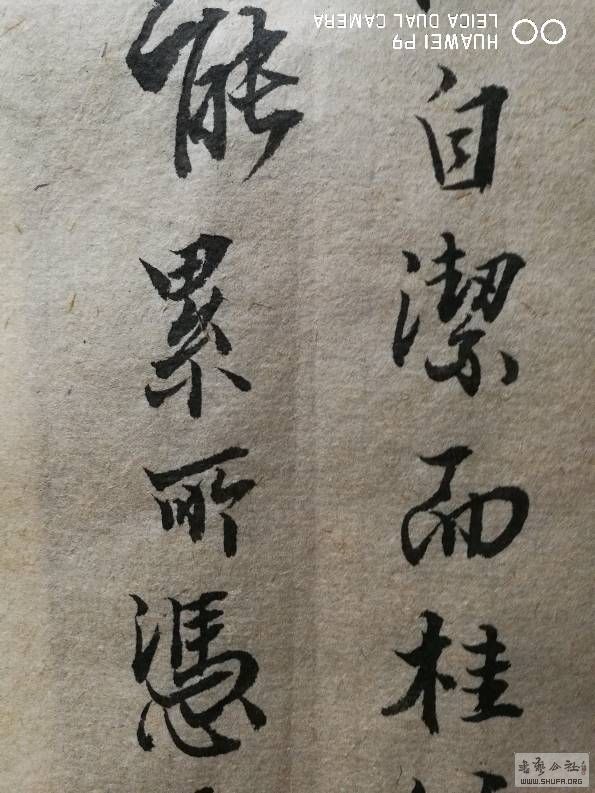 自潔而桂
能累所憑
HUAWEI P9
LEICA DUAL CAMERA
书艺公社
WWW.SHUFA.ORG